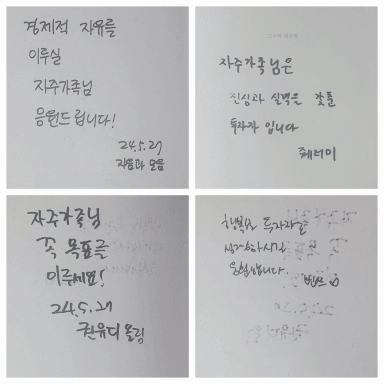 경제적 자유를
이루실
자주가족님
응원드립니다!
24.5.27
자음과 모음
자주가족님은
진심과 실력을 갖춘
투자자 입니다
쥬러미
자주가족님
꼭 목표를
이루세요!
24.5.27
권유디 올림
행복한 투자자로
성장하시길
응원합니다.